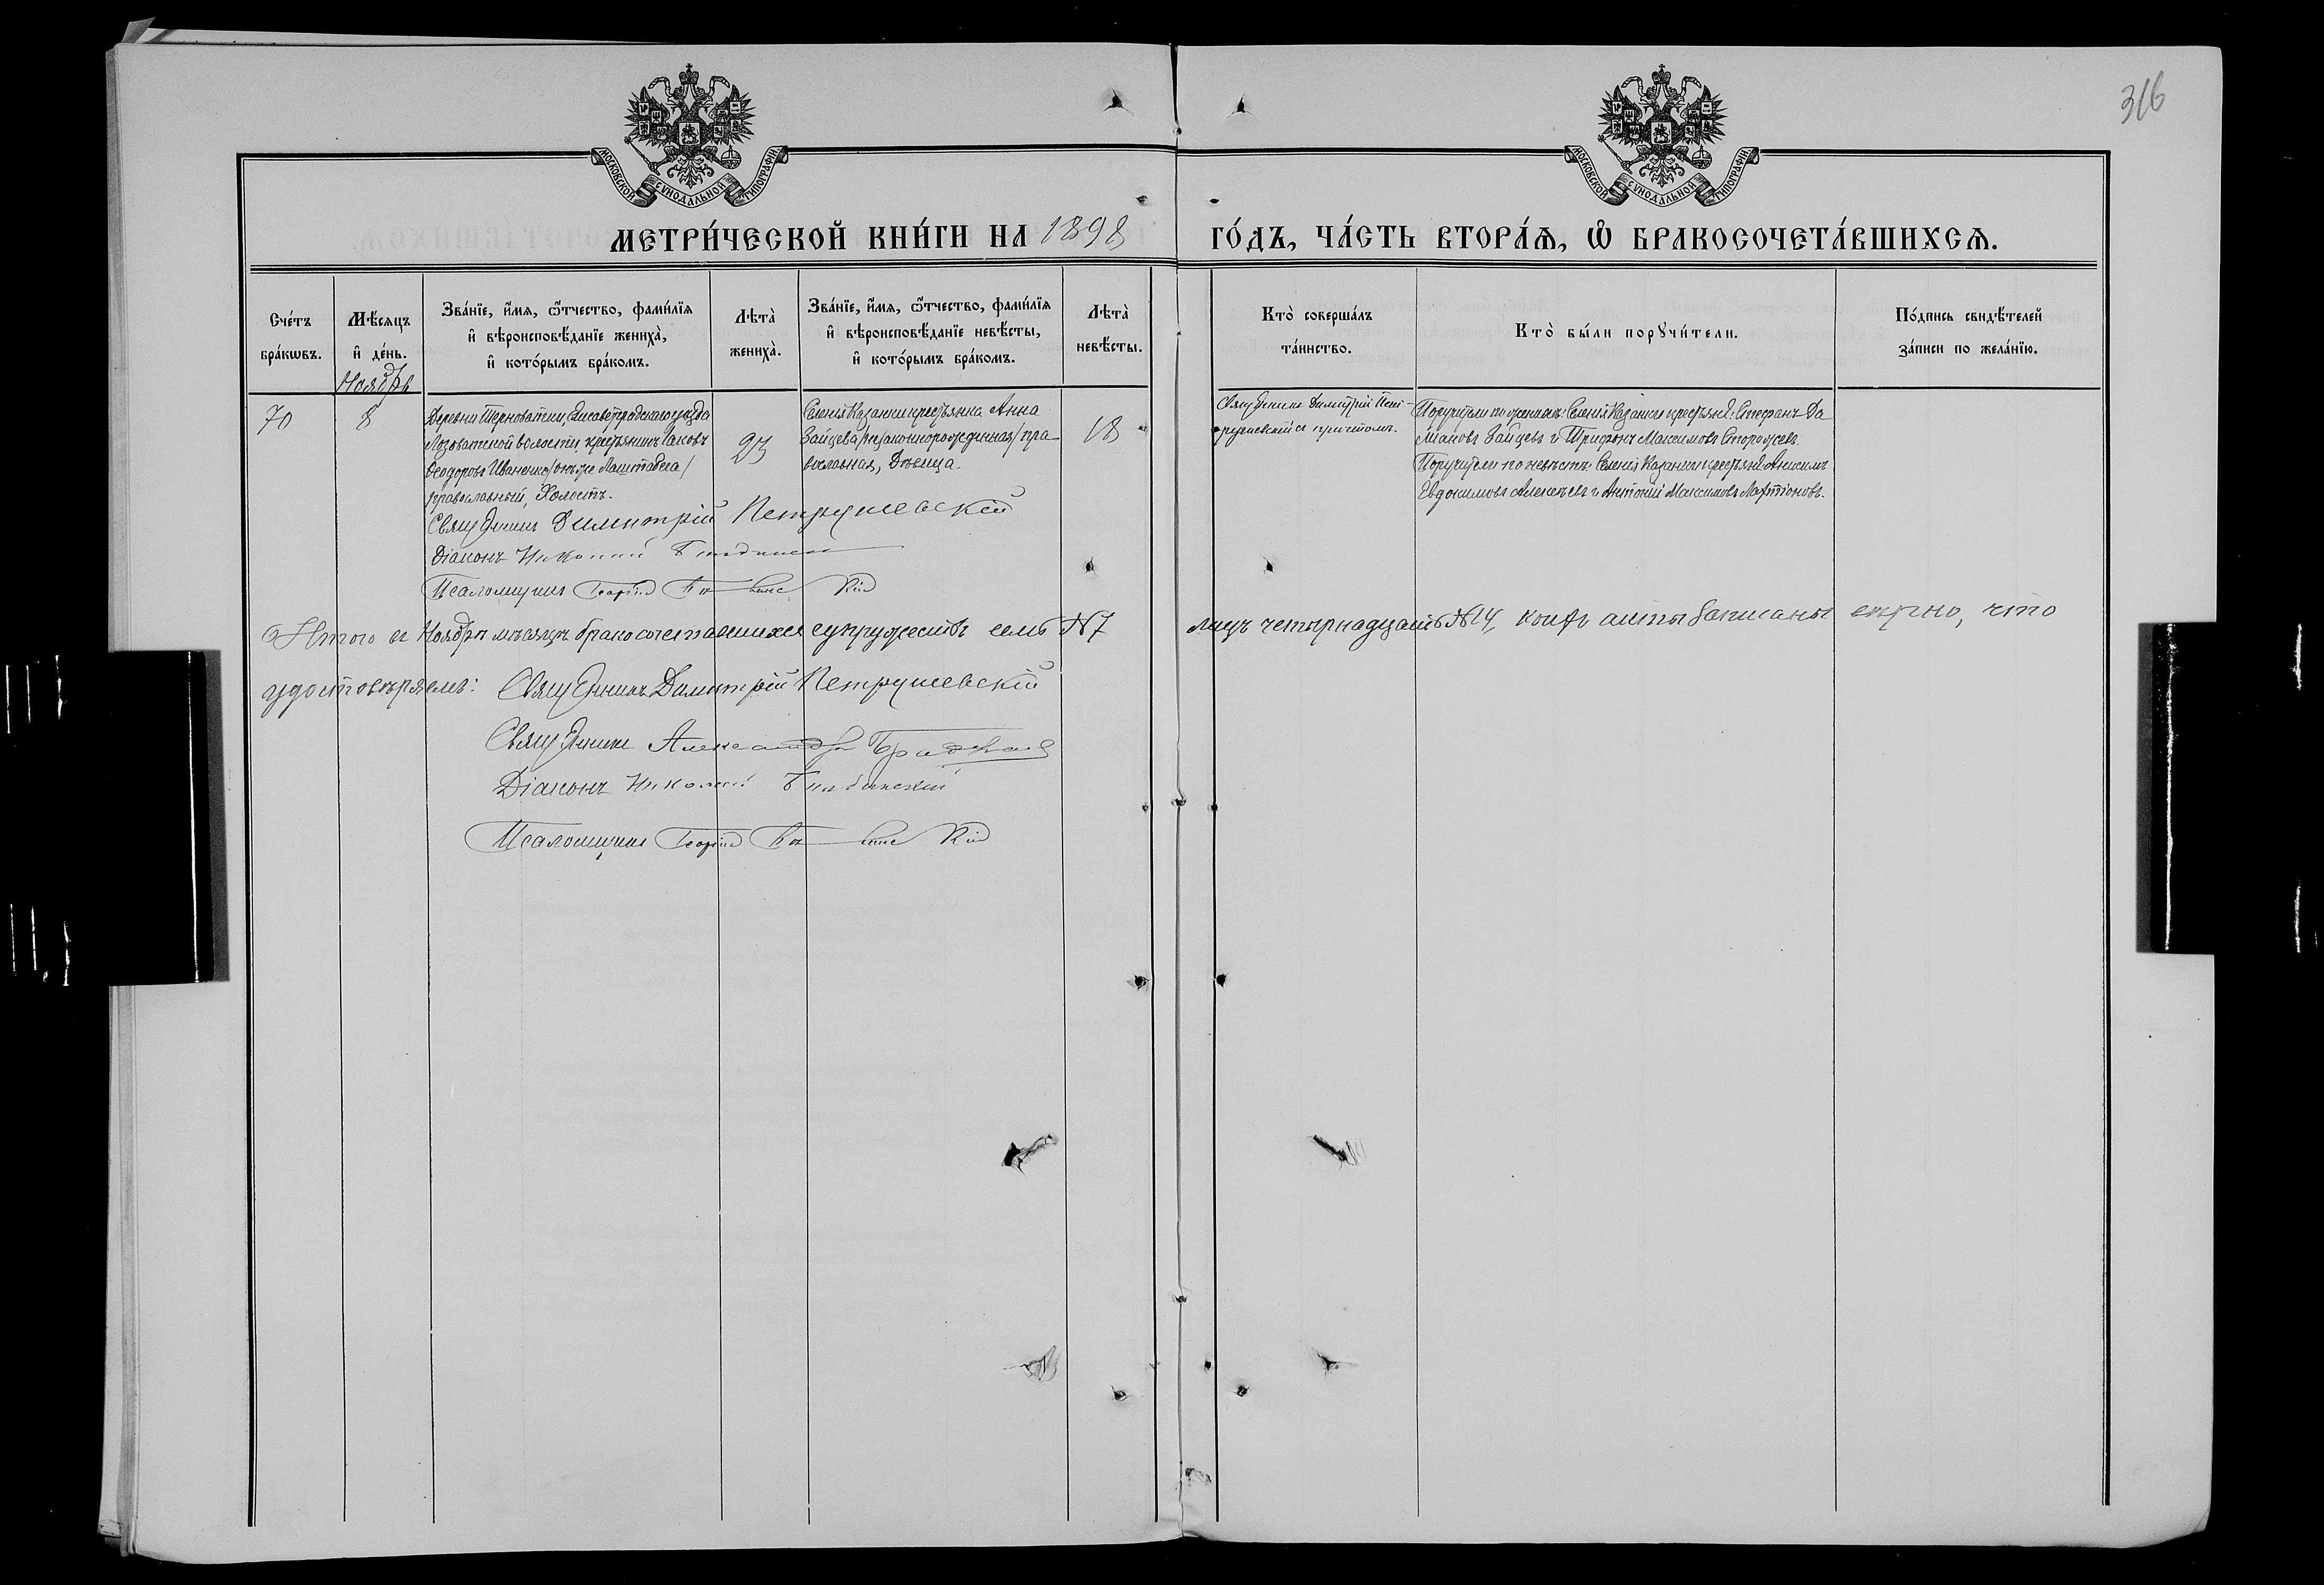 316
МОСКОВСКОЙ СУНОДАЛЬНОЙ ТИПОГРАФІИ.
МОСКОВСКОЙ СУНОДАЛЬНОЙ ТИПОГРАФІИ.
МЕТРИ́ЧЕСКОЙ КНИ́ГИ НА 1898 ГО́ДЪ, ЧА́СТЬ ВТОРА́Ѧ, Ѽ БРАКОСОЧЕТА́ВШИХСѦ.
Сче́тъ
бра́кѡвъ.
Мѣсяцъ
и҆ де́нь.
Зва́нїе, и҆́мя, ѻ҆́тчество, фами́лїя
и҆ вѣроисповѣ́данїе жениха̀,
и҆ кото́рымъ бра́комъ.
Лѣта̀
жениха̀.
Зва́нїе, и҆́мя, ѻ҆́тчество, фами́лїя
и҆ вѣроисповѣ́данїе невѣ́сты,
и҆ кото́рымъ бра́комъ.
Лѣта̀
невѣ́сты.
Кто̀ соверша́лъ
та́инство.
Кто̀ бы́ли порꙋчи́тели.
По́дпись свидѣ́телей
за́писи по жела́нїю.
Ноябрь
70
8
Деревни Терноватки, Елисаветградскаго уѣзда
Лозоватской волости, крестьянинъ Іаковъ
Ѳеодоровъ Иваненко /онъ же Лаштабега/
православный, Холостъ.
23
Селенія Казанки крестьянка Анна
Зайцева /незаконнорожденная/ пра-
вославная, Дѣвица.
18
Священникъ Димитрій Пет-
рушевскій съ причтомъ.
Поручители по женихѣ: Селенія Казанки крестьяне: Стефанъ Да
міановъ Зайцевъ и Трифонъ Максимовъ Сторожевъ.
Поручители по невѣстѣ: Селенія Казанки крестьяне Анисимъ
Евдокимовъ Алексѣевъ и Антоній Максимовъ Лактіоновъ.
Священникъ Димитрій Петрушевскій
Діаконъ Николай
Псаломщикъ Георгій
Итого въ Ноябрѣ мѣсяцѣ бракосочетавшихся супружествъ семь №7 лицъ четырнадцать №14, коихъ акты записаны вѣрно, что
удостовѣряемъ: Священникъ Димитрій Петрушевскій
Священникъ Александръ
Діаконъ Николай
Псаломщикъ Георгій